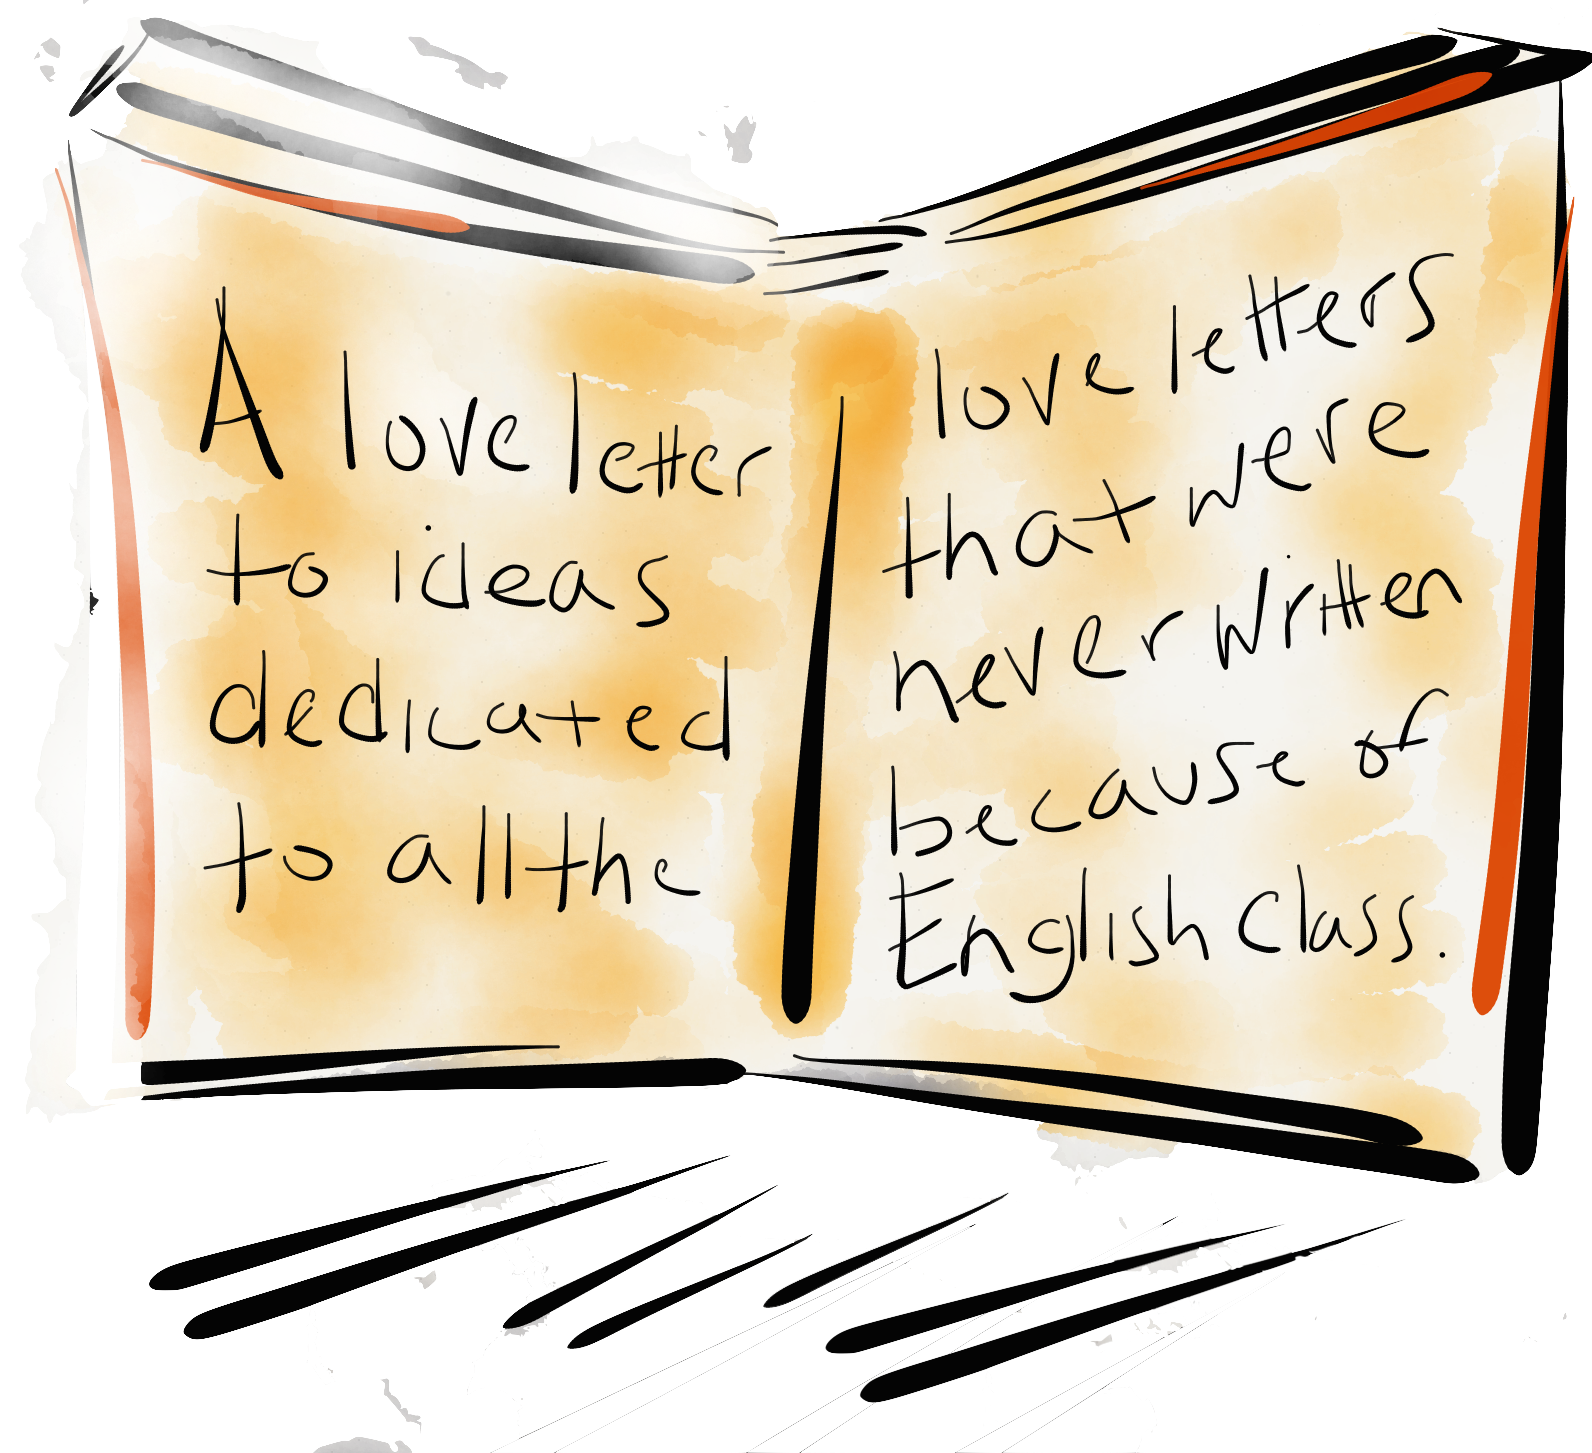 A love letter
to ideas
dedicated
to all the
love letters
that were
never written
because of
English class.